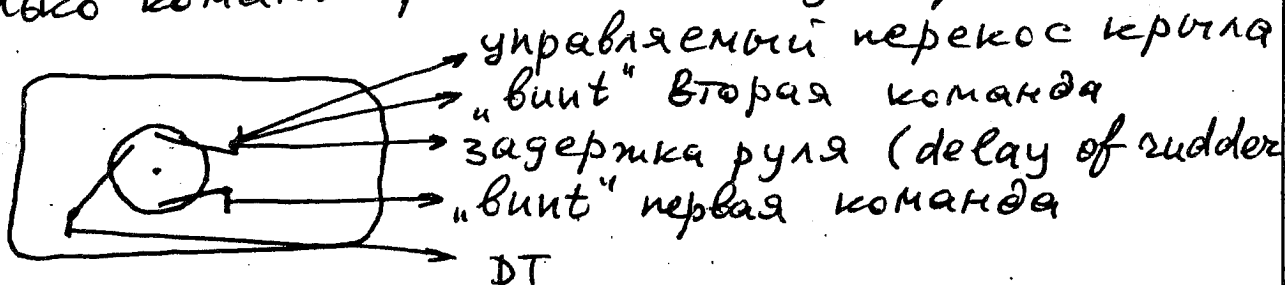 команд
управляемый перекос крыла
„bunt“ вторая команда
задержка руля (delay of rudder
„bunt“ первая команда
DT